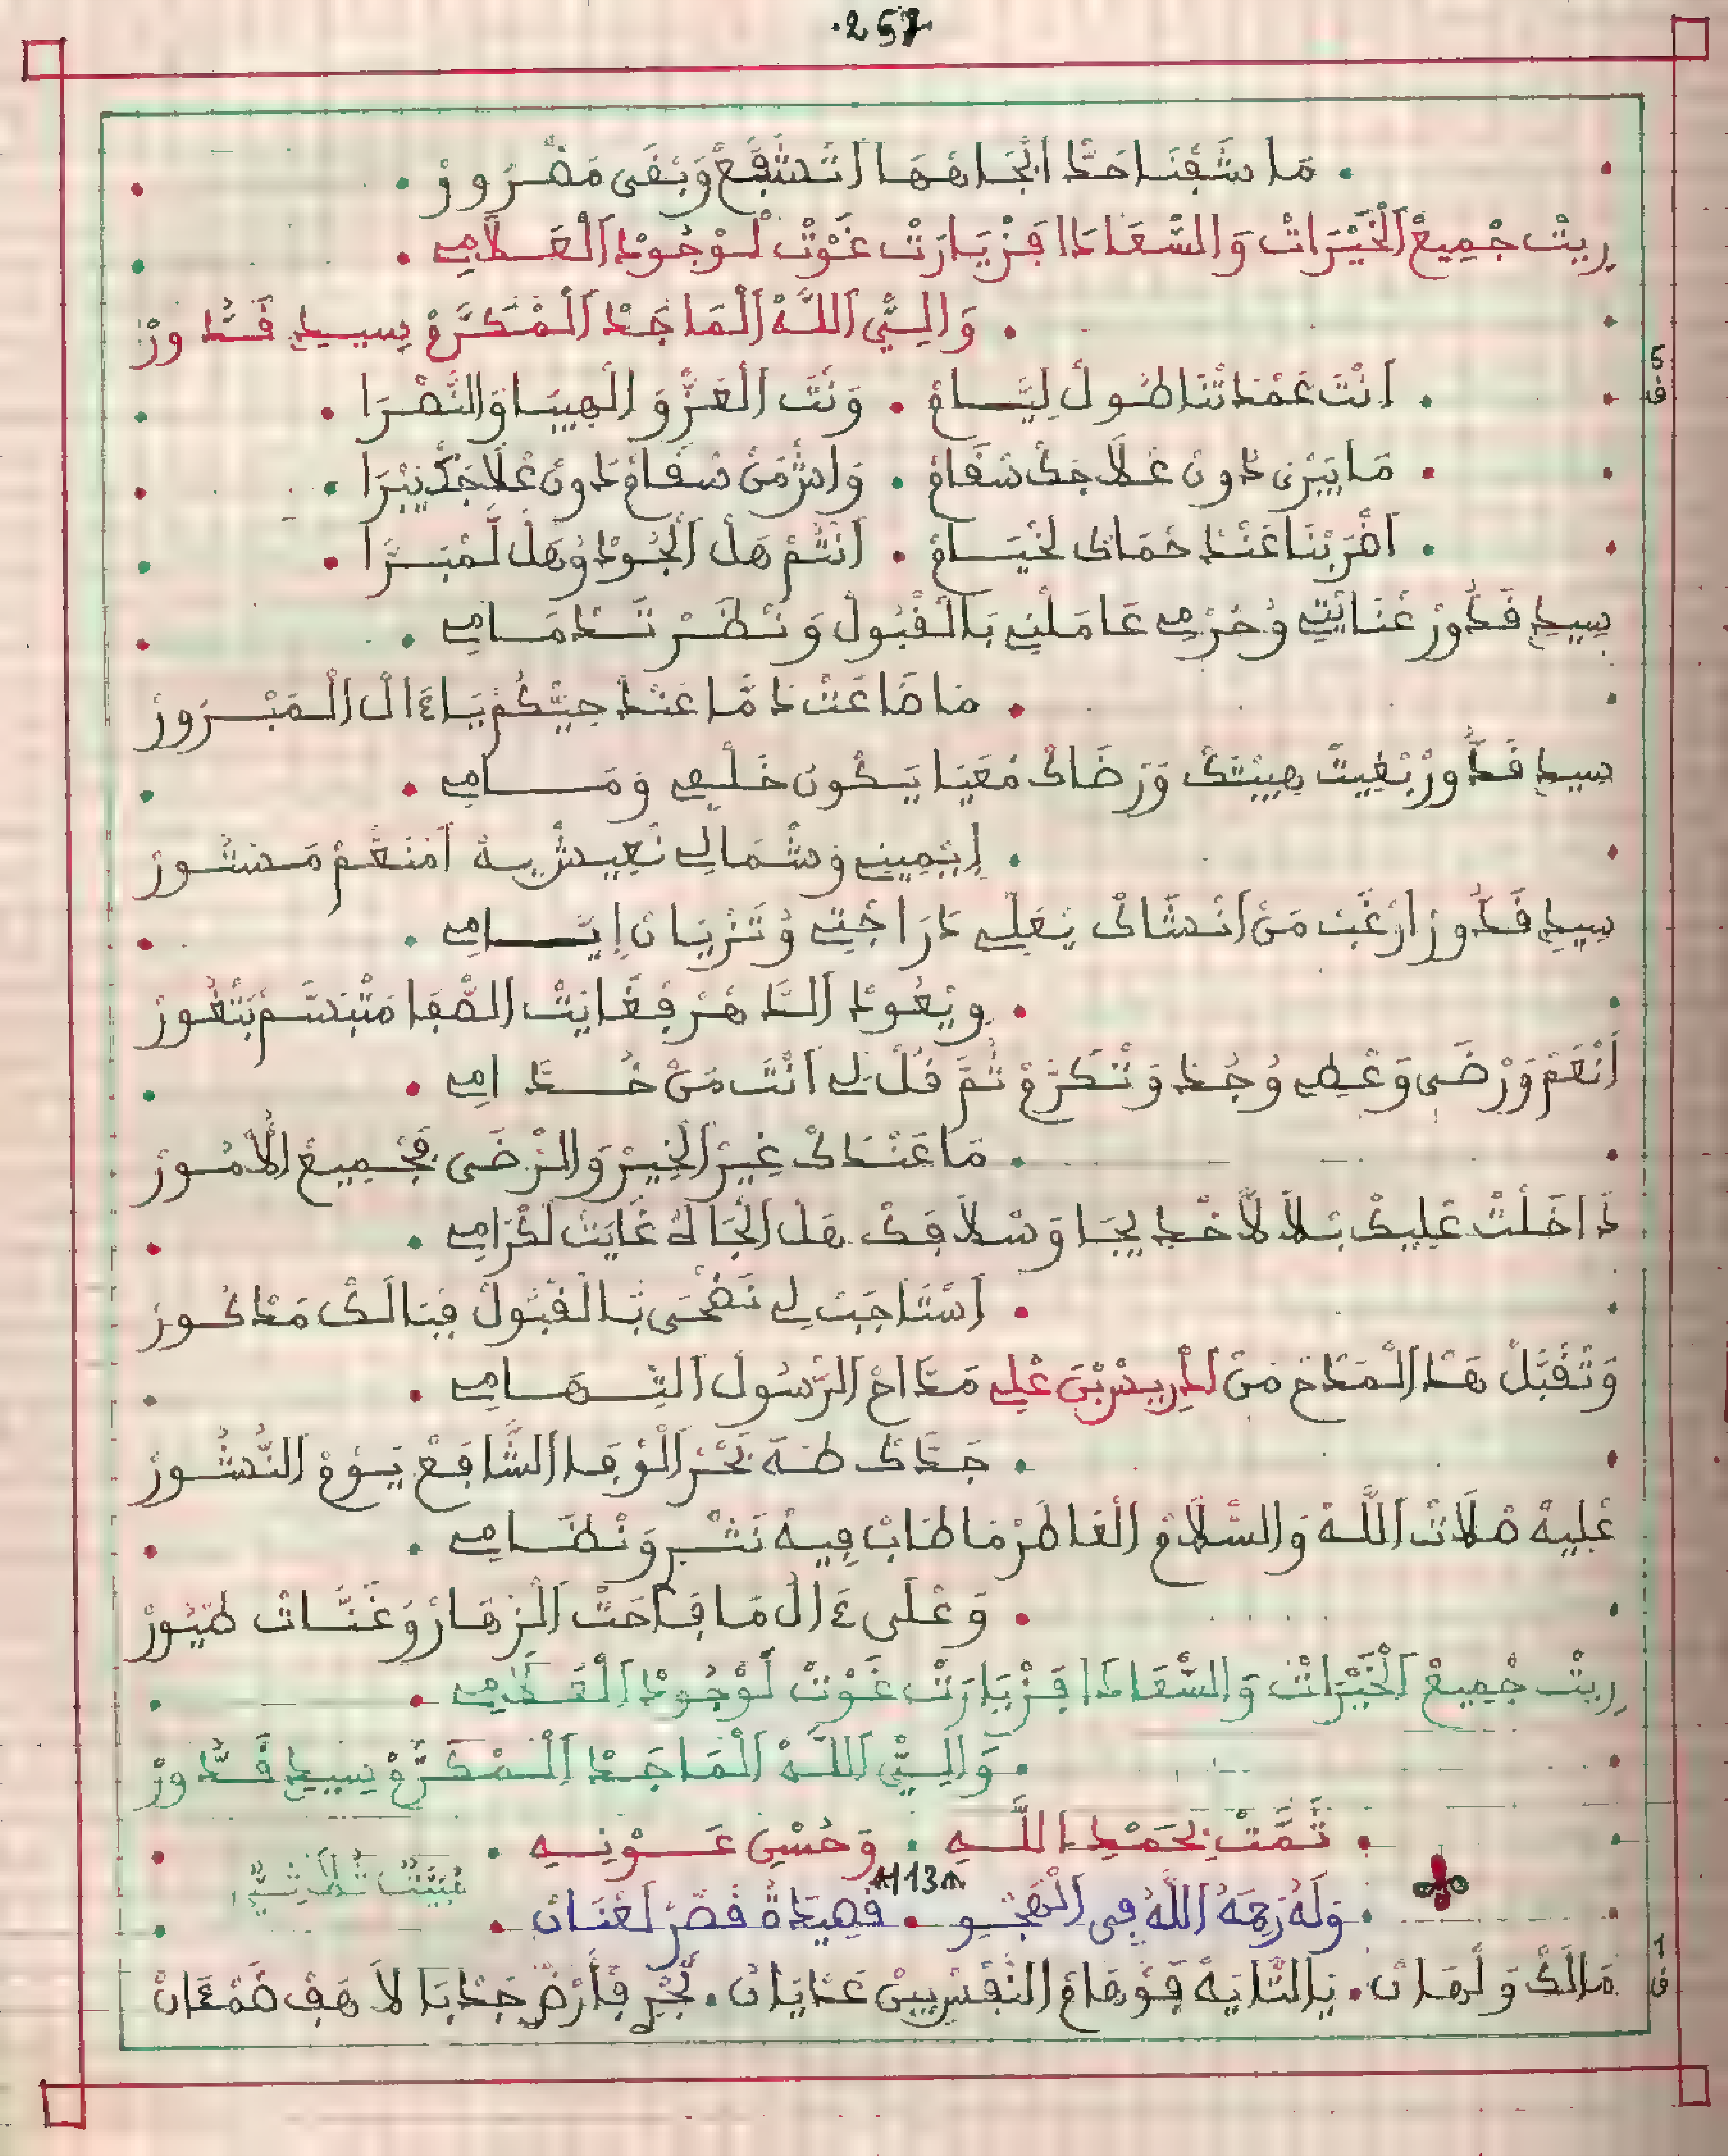 257
مَا شَفْنَا حَدْ الْجَاهْهَا اتَّشَفَّعْ وَبْقَى مَضْرُورْ
رِيتْ جْمِيعْ اَلْخَيْرَاتْ وَالسَّعَادَا فَزْيَارَتْ غَوْتْ لَوْجُودْ اَلْعَلَّامِي
وَالِيِّ اَللَّهْ اَلْمَاجَدْ اَلْمْكَرَّمْ سِيدِ قَدُّورْ
ق 5
اَنْتَ عَمْدَتْنَا طُولْ لِيَّامْ . وَنْتَ اَلْعَزّْ وَالْهِيبَا وَالنَّصْرَا
مَا يَبْرَى دُونْ عْلَاجَكْ سْقَامْ . وَاشْ مَنْ سْقَامْ دُونْ عْلَاجَكْ يَبْرَا
اَقْرَبْنَا عَنْدْ حْمَاكْ لَخْيَامْ . اَنْتُمْ هَلْ اَلْجُودْ وُهَلْ لَمْبَرَّا
سِيدِ قَدُّورْ عْنَايْتِي وُحُرْمِي عَامَلْنِي بَالْقْبُولْ وَنْظَرْ تَدْمَامِي
مَا ضَاعَتْ دَمَّا عَنْدْ جِيتْكُمْ يَا ءَالْ الْمَبْرُورْ
سِيدِ قَدُّورْ بْغِيتْ هِيبْتَكْ وَرْضَاكْ مْعَيَا يَكُونْ خَلْفِي وَمَامِي
اِيْمِينِي وَشْمَالِي نْعِيشْ بِهْ اَمْنَعَّمْ مَسْتُورْ
سِيدِ قَدُّورْ اَرْغَبْ مَنْ اَنْشَاكْ يَعْلِي دَرَاجْتِي وُتَزْيَانْ اِيَّامِي
وِيْعُودْ اَلدَّهْرْ فِغَايَتْ الصّْفَا مَتْبَسَّمْ بَتْغُورْ
اَنْعَمْ وَرْضَى وَعْطِي وُجُدْ وَتْكَرَّمْ ثُمَّ قُلْ لِي اَنْتَ مَنْ خُدَّامِي
مَا عَنْدَكْ غِيرْ اَلْخِيرْ وَالرْضَى فَجْمِيعْ الْأُمُورْ
دَاخَلْتْ عْلِيكْ بْلَالَّا خْدِيجَا وَسْلَافَكْ هَلْ اَلْجَاهْ غَايَتْ لَكْرَامِي
اَسْتَاجَبْ لِي نَضْحَى بَالْقْبُولْ فَبْنَالَكْ مَدْكُورْ
وَتْقَبَّلْ هَدْ اَلْمْدَحْ مَنْ اَدْرِيسْ بْنْ عْلِي مَدَّاحْ اَلرَّسُولْ اَلتِّهَامِي
جَدَّكْ طَهَ بَحْرْ اَلْوْفَا اَلشَّافَعْ يَوْمْ اَلنُّشُورْ
عْلِيهْ صْلَاتْ اَللَّهْ وَالسّْلَامْ اَلْعَاطَرْ مَا طَابْ فِيهْ نَثْرِ وَنْظَامِي
وَعْلَى ءَالْ مَا فَاحَتْ اَلزْهَارْ وَغَنَّاتْ طْيُورْ
رِيتْ جْمِيعْ اَلْخَيْرَاتْ وَالسَّعَادَا فَزْيَارَتْ غَوْتْ لَوْجُودْ اَلْعَلَّامِي
وَالِيِّ اَللَّهْ اَلْمَاجَدْ اَلْمْكَرَّمْ سِيدِ قَدُّورْ
تَمَّتْ بِحَمْدِ اللَّهِ . وَحُسْنِ عَوْنِهِ
مُبَيَّتْ ثُلَاثِيٌّ
113
وَلَهُ رَحِمَهُ اَللَّهُ فِي اَلْهَجْوِ . قَصِيدَةُ قَصَّرْ لَعْنَانْ
ق 1
مَالَكْ وَلْهَانْ . يَالتَّايَهْ فَوْهَامْ النَّفْسْ بِينْ عَدْيَانْ . تَجْرِ فْأَرْضْ جَدْبَا لَاهَفْ ضَمْءَانْ